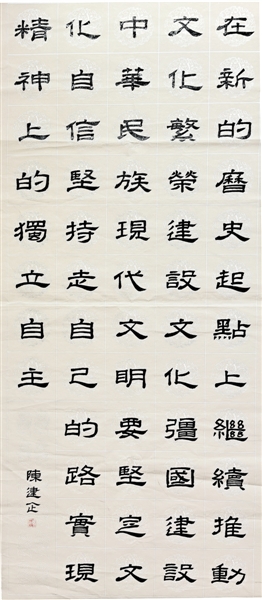 在新的曆史起點上繼續推動
文化繁榮建設文化彊國建設
中華民族現代文明要堅定文
化自信堅持走自己的路實現
精神上的獨立自主
陳建企